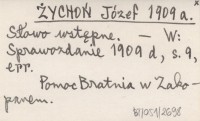 ŻYCHOŃ Józef 1909 a.
Słowo wstępne. — W:
Sprawozdanie 1909 d, s. 9,
err.
Pomoc Bratnia w Zako-
panem.